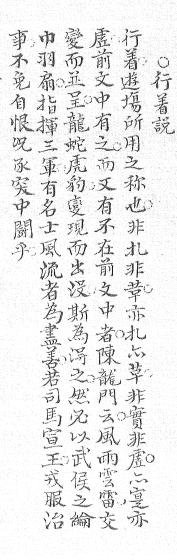 ○行着説
行着遊場所用之称也非札非草亦札亦草非實非虚亦寔亦
虚前文中有之而又有不在前文中者陳龍門云風雨雲雷交
變而並呈龍蛇虎豹變現而出没斯為得之然必以武侯之綸
巾羽扇指揮三軍有名士風流者為盡善若司馬宣王戎服治
事不免自恨况承突中鬪乎